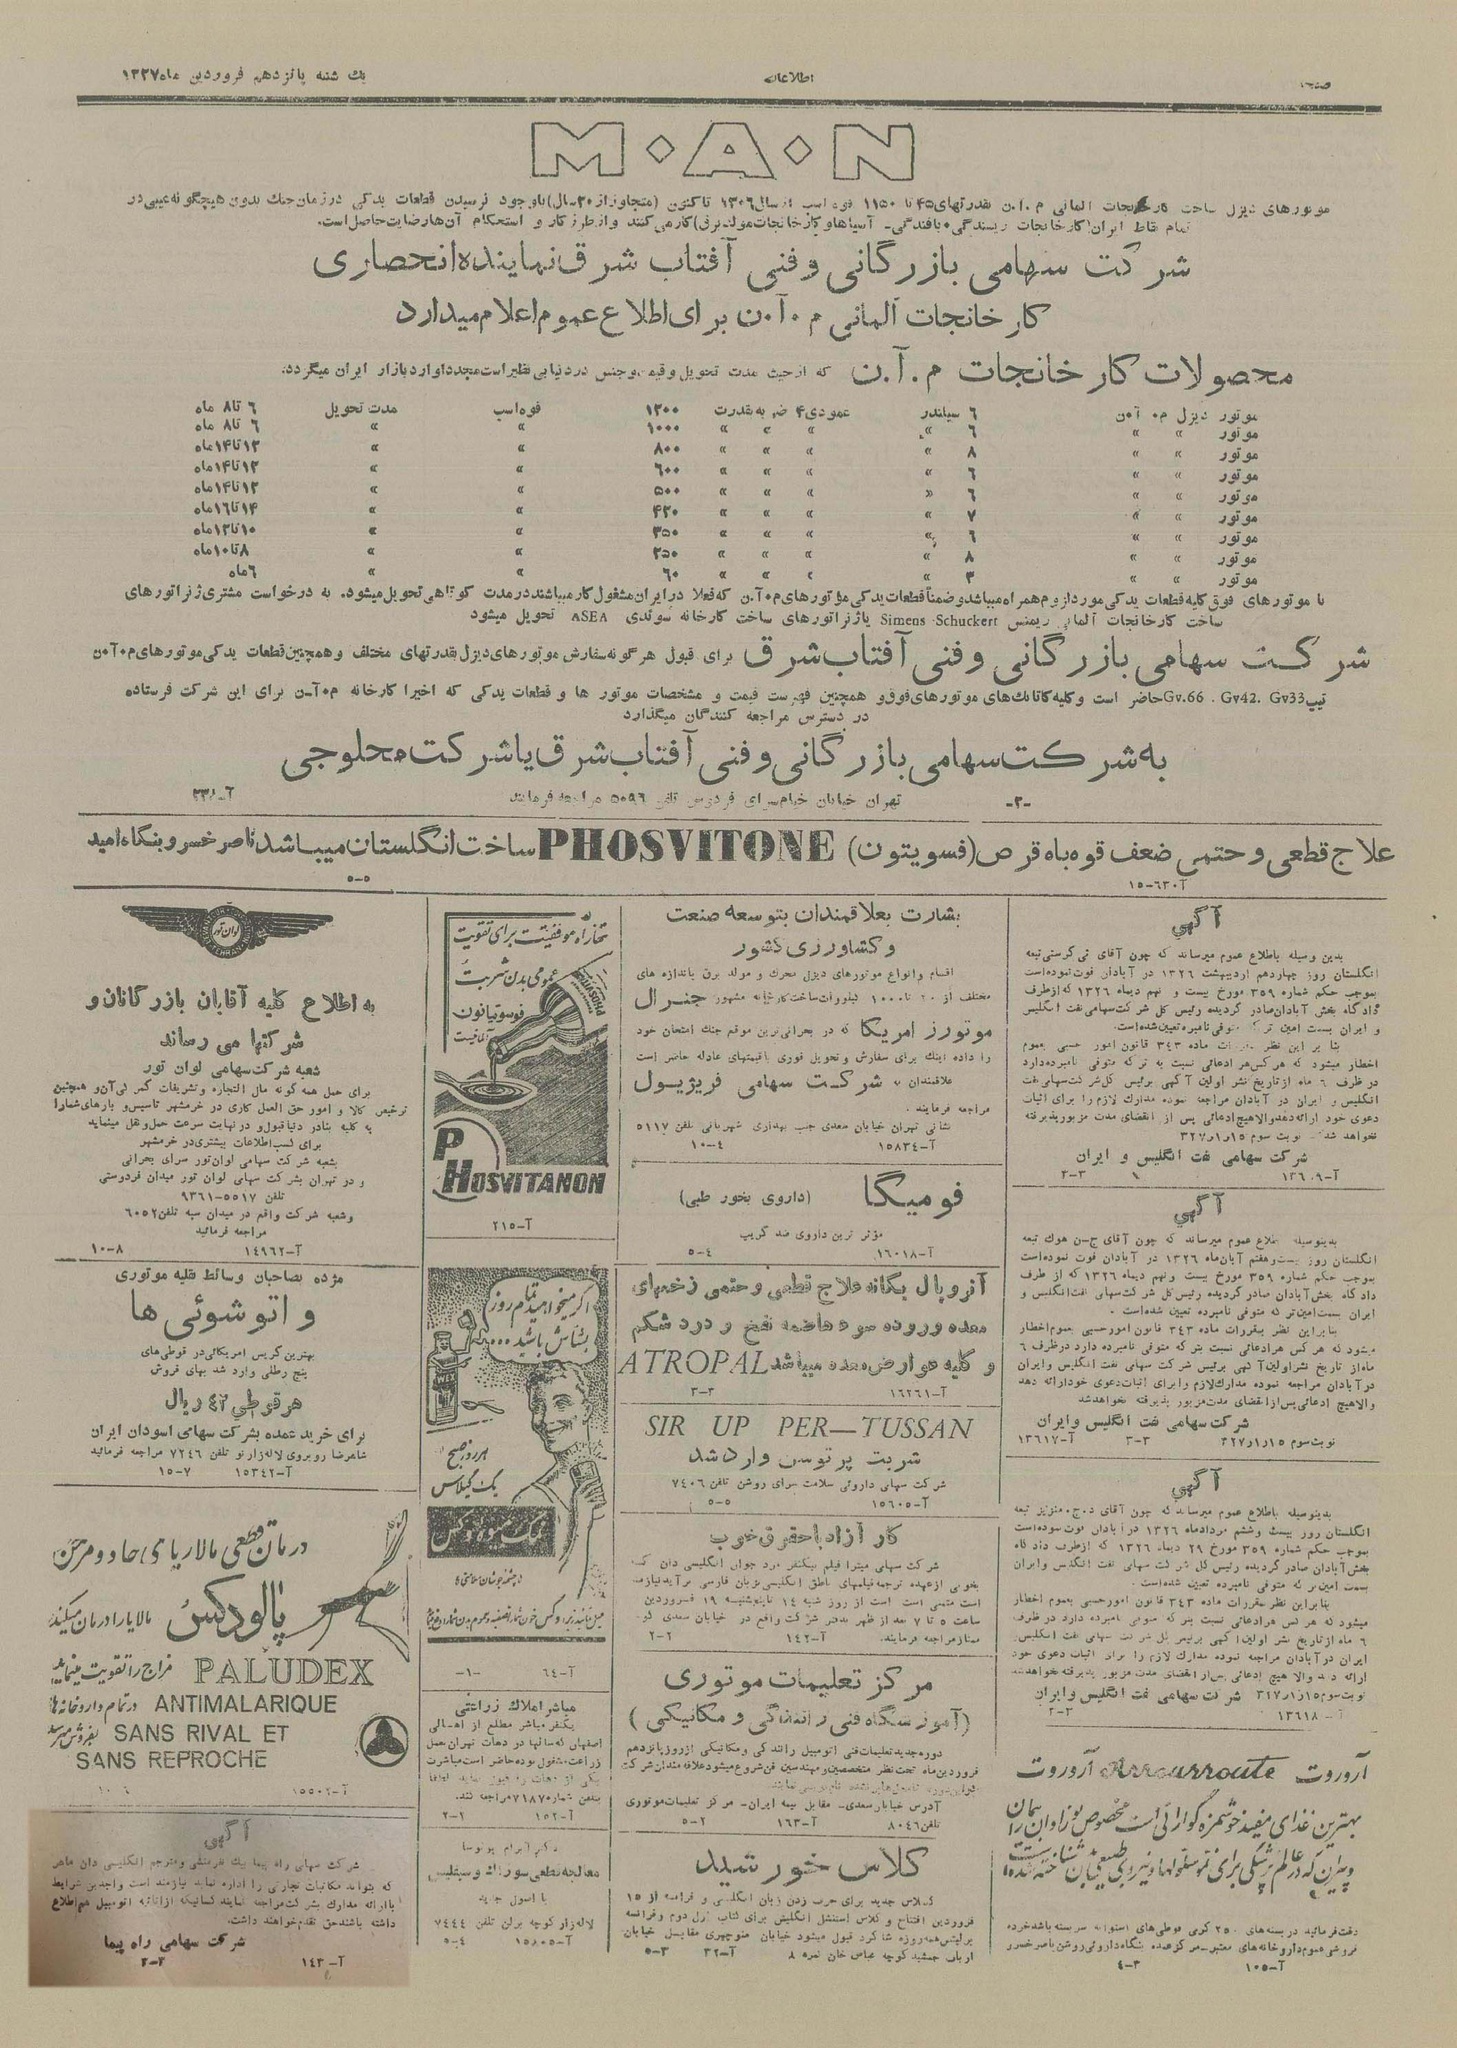 یک شنبه پانزدهم فروردین ماه ۱۳۲۷
اطلاعات
صفحه
M·A·N
موتورهای دیزل ساخت کارخانجات آلمانی م.آ.ن بقدرتهای ۴۵ تا ۱۱۵۰ قوه اسب از سال ۱۳۰۶ تاکنون (متجاوز از ۲۰ سال) باوجود نرسیدن قطعات یدکی در زمان جنگ بدون هیچگونه عیبی در
تمام نقاط ایران (کارخانجات ریسندگی و بافندگی - آسیاها و کارخانجات مولد برق) کار می کنند و از طرز کار و استحکام آن ها رضایت حاصل است.
شرکت سهامی بازرگانی و فنی آفتاب شرق نماینده انحصاری
کارخانجات آلمانی م.آ.ن برای اطلاع عموم اعلام میدارد
محصولات کارخانجات م.آ.ن که از حیث مدت تحویل و قیمت و جنس در دنیا بی نظیر است مجددا وارد بازار ایران میگردد.
موتور دیزل م. آ.ن ۶ سیلندر عمودی ۴ ضربه بقدرت ۱۲۰۰ قوه اسب مدت تحویل ۶ تا ۸ ماه
موتور » » ۶ » » » » ۱۰۰۰ » » ۶ تا ۸ ماه
موتور » » ۸ » » » » ۸۰۰ » » ۱۲ تا ۱۴ ماه
موتور » » ۶ » » » » ۶۰۰ » » ۱۲ تا ۱۴ ماه
موتور » » ۶ » » » » ۵۰۰ » » ۱۲ تا ۱۴ ماه
موتور » » ۷ » » » » ۴۲۰ » » ۱۴ تا ۱۶ ماه
موتور » » ۶ » » » » ۳۵۰ » » ۱۰ تا ۱۲ ماه
موتور » » ۸ » » » » ۲۵۰ » » ۸ تا ۱۰ ماه
موتور » » ۳ » » » » ۶۰ » » ۶ ماه
با موتورهای فوق کلیه قطعات یدکی مورد لزوم همراه میباشد و ضمناً قطعات یدکی موتورهای م.آ.ن که فعلا در ایران مشغول کار میباشند در مدت کوتاهی تحویل میشود. به درخواست مشتری ژنراتورهای
ساخت کارخانجات آلمانی زیمنس Simens-Schuckert یا ژنراتورهای ساخت کارخانه سوئدی ASEA تحویل میشود
شرکت سهامی بازرگانی و فنی آفتاب شرق برای قبول هرگونه سفارش موتورهای دیزل بقدرتهای مختلف و همچنین قطعات یدکی موتورهای م.آ.ن
تیپ Gv.66 . Gv42. Gv33 حاضر است و کلیه کاتالگ های موتورهای فوق و همچنین فهرست قیمت و مشخصات موتور ها و قطعات یدکی که اخیرا کارخانه م.آ.ن برای این شرکت فرستاده
در دسترس مراجعه کنندگان میگذارد
به شرکت سهامی بازرگانی و فنی آفتاب شرق یا شرکت محلوجی
تهران خیابان خیام سرای فردوس تلفن ۵۰۹۶ مراجعه فرمایند
-۲-
علاج قطعی و حتمی ضعف قوه باه قرص (فسویتون) PHOSVITONE ساخت انگلستان میباشد ناصرخسرو بنگاه امید
آ-۶۳۰-۱۵
۵-۵
آگهی
بدین وسیله باطلاع عموم میرساند که چون آقای تی کرستی تبعه
انگلستان روز چهاردهم اردیبهشت ۱۳۲۶ در آبادان فوت نموده است
بموجب حکم شماره ۳۵۹ مورخ بیست و نهم دیماه ۱۳۲۶ که از طرف
دادگاه بخش آبادان صادر گردیده رئیس کل شرکت سهامی نفت انگلیس
و ایران بسمت امین ترکه متوفی نامبرده تعیین شده است.
بنا بر این نظر بمقررات ماده ۳۴۳ قانون امور حسبی بعموم
اخطار میشود که هرکس هر ادعائی نسبت به ترکه متوفی نامبرده دارد
در ظرف ۶ ماه از تاریخ نشر اولین آگهی برئیس کل شرکت سهامی نفت
انگلیس و ایران در آبادان مراجعه نموده مدارک لازم را برای اثبات
دعوی خود ارائه دهد والا هیچ ادعائی پس از انقضای مدت مزبور پذیرفته
نخواهد شد. نوبت سوم ۱۵ر۱ر۳۲۷
شرکت سهامی نفت انگلیس و ایران
آ-۱۳۶۰۹ ۳-۳
آگهی
بدینوسیله باطلاع عموم میرساند که چون آقای ج-ن هوک تبعه
انگلستان روز بیست و هفتم آبان ماه ۱۳۲۶ در آبادان فوت نموده است
بموجب حکم شماره ۳۵۹ مورخ بیست و نهم دیماه ۱۳۲۶ که از طرف
دادگاه بخش آبادان صادر گردیده رئیس کل شرکت سهامی نفت انگلیس و
ایران بسمت امین ترکه متوفی نامبرده تعیین شده است.
بنابر این نظر بمقررات ماده ۳۴۳ قانون امور حسبی بعموم اخطار
میشود که هر کس هر ادعائی نسبت بترکه متوفی نامبرده دارد در ظرف ۶
ماه از تاریخ نشر اولین آگهی برئیس شرکت سهامی نفت انگلیس و ایران
در آبادان مراجعه نموده مدارک لازم را برای اثبات دعوی خود ارائه دهد
والا هیچ ادعائی پس از انقضای مدت مزبور پذیرفته نخواهد شد
شرکت سهامی نفت انگلیس و ایران
نوبت سوم ۱۵ر۱ر۳۲۷ ۳-۳ آ-۱۳۶۱۷
آگهی
بدینوسیله باطلاع عموم میرساند که چون آقای د.ج. منزیز تبعه
انگلستان روز بیست و ششم مردادماه ۱۳۲۶ در آبادان فوت نموده است
بموجب حکم شماره ۳۵۹ مورخ ۲۹ دیماه ۱۳۲۶ که از طرف دادگاه
بخش آبادان صادر گردیده رئیس کل شرکت سهامی نفت انگلیس و ایران
بسمت امین ترکه متوفی نامبرده تعیین شده است.
بنابر این نظر بمقررات ماده ۳۴۳ قانون امور حسبی بعموم اخطار
میشود که هر کس هر ادعائی نسبت بترکه متوفی نامبرده دارد در ظرف
۶ ماه از تاریخ نشر اولین آگهی برئیس کل شرکت سهامی نفت انگلیس
ایران در آبادان مراجعه نموده مدارک لازم را برای اثبات دعوی خود
ارائه دهد والا هیچ ادعائی پس از انقضای مدت مزبور پذیرفته نخواهد شد
نوبت سوم ۱۵ر۱ر۳۲۷ شرکت سهامی نفت انگلیس و ایران
آ-۱۳۶۱۸ ۳-۳
آروروت Arrourroute آروروت
بهترین غذای مفید خوشمزه گوارائی است مخصوص نوزادان بیماران
و پیران که در عالم پزشکی برای
دقت فرمائید در بسته های ۲۵۰ گرمی قوطی های استوانه سربسته باشد خرده
فروشی عموم داروخانه های معتبر - مرکز عمده بنگاه داروئی روشن ناصرخسرو
آ-۱۰۵ ۳-۴
بشارت بعلاقمندان بتوسعه صنعت
و کشاورزی کشور
اقسام و انواع موتورهای دیزل محرک و مولد برق باندازه های
مختلف از ۲۰ تا ۱۰۰۰ کیلووات ساخت کارخانه مشهور جنرال
موتورز امریکا که در بحرانی ترین موقع جنگ امتحان خود
را داده اینک برای سفارش و تحویل فوری باقیمتهای عادله حاضر است
علاقمندان به شرکت سهامی فریژیول
مراجعه فرمایند.
نشانی تهران خیابان سعدی جنب بهداری شهربانی تلفن ۵۱۱۷
آ-۱۵۸۳۴ ۴-۱۰
فومیگا (داروی بخور طبی)
مؤثر ترین داروی ضد گریپ
آ-۱۶۰۱۸ ۴-۵
آتروپال یگانه علاج قطعی و حتمی زخمهای
معده و روده سوء هاضمه نفخ و درد شکم
و کلیه عوارض معده میباشد ATROPAL
آ-۱۶۲۶۱ ۳-۳
SIR UP PER—TUSSAN
شربت پرتوسن وارد شد
شرکت سهامی داروئی سلامت سرای روشن تلفن ۷۴۰۶
آ-۱۵۶۰۵ ۵-۵
کار آزاد با حقوق خوب
شرکت سهامی میترا فیلم بیکنفر مرد جوان انگلیسی دان که
بخوبی از عهده ترجمه فیلمهای ناطق انگلیسی بزبان فارسی برآید نیازمند
است متمنی است از روز شنبه ۱۴ تا پنجشنبه ۱۹ فروردین
ساعت ۵ تا ۷ بعد از ظهر بدفتر شرکت واقع در خیابان سعدی کوچه
ممتاز مراجعه فرمایند. آ-۱۴۲ ۲-۲
مرکز تعلیمات موتوری
(آموزشگاه فنی رانندگی و مکانیکی)
دوره جدید تعلیمات فنی اتومبیل رانندگی و مکانیکی از روز پانزدهم
فروردین ماه تحت نظر متخصصین و مهندسین فن شروع میشود علاقه مندان شرکت
آدرس خیابان سعدی - مقابل بیمه ایران - مرکز تعلیمات موتوری
تلفن ۸۰۴۶ آ-۱۶۳ ۲-۵
کلاس خورشید
کلاس جدید برای حرف زدن زبان انگلیسی و فرانسه از ۱۵
فروردین افتتاح و کلاس اسنشل انگلیش برای کتاب اول دوم و فرانسه
برلیتس همه روزه شاگرد قبول میشود خیابان منوچهری مقابل خیابان
ارباب جمشید کوچه عباس خان نمره ۸ آ-۳۲ ۳-۵
تنها راه موفقیت برای تقویت
عمومی بدن شربت
فوسویتانون
PHOSVITANON
آ-۲۱۵
اگر میخواهید تمام روز
بشاش باشید...
هر روز صبح
یک گیلاس
آ-۶۴ -۱-
مباشر املاک زراعتی
یکنفر مباشر مطلع از اهالی
اصفهان که سالها در دهات تهران عمل
زراعت مشغول بوده حاضر است مباشرت
یکی از دهات را قبول نماید لطفا
بتلفن شماره ۷۱۸۷ مراجعه کنند.
آ-۱۵۲ ۲-۲
دکتر آبرام
معالجه قطعی سوزاک و سیفلیس
با اصول جدید
لاله زار کوچه برلن تلفن ۷۴۴۴
آ-۱۵۸۰۵ ۴-۵
لوان تور
به اطلاع کلیه آقایان بازرگانان و
شرکتها می رساند
شعبه شرکت سهامی لوان تور
برای حمل همه گونه مال التجاره و تشریفات گمرکی آن و همچنین
ترخیص کالا و امور حق العمل کاری در خرمشهر تاسیس و بارهای شما را
به کلیه بنادر دنیا قبول و در نهایت سرعت حمل و نقل مینماید
برای کسب اطلاعات بیشتری در خرمشهر
بشعبه شرکت سهامی لوان تور سرای بحرانی
و در تهران بشرکت سهامی لوان تور میدان فردوسی
تلفن ۵۵۱۷-۹۳۶۱
و شعبه شرکت واقع در میدان سپه تلفن ۶۰۵۲
مراجعه فرمائید
آ-۱۴۹۶۲ ۸-۱۰
مژده بصاحبان وسائط نقلیه موتوری
و اتوشوئی ها
بهترین گریس امریکائی در قوطی های
پنج رطلی وارد شد بهای فروش
هر قوطی ۴۲ ریال
برای خرید عمده بشرکت سهامی اسودان ایران
شاهرضا روبروی لاله زارنو تلفن ۷۲۴۶ مراجعه فرمائید
آ-۱۵۳۴۲ ۷-۱۵
درمان قطعی مالاریای حاد و مزمن
پالودکس مالاریا را درمان میکند
PALUDEX مزاج را تقویت مینماید
ANTIMALARIQUE در تمام داروخانه ها
SANS RIVAL ET بفروش میرسد
SANS REPROCHE
آ-۱۵۵۰۲
آگهی
شرکت سهامی راه پیما بیک نفر منشی و مترجم انگلیسی دان ماهر
که بتواند مکاتبات تجارتی را اداره نماید نیازمند است واجدین شرایط
با ارائه مدارک بشرکت مراجعه نمایند کسانیکه از اثاثه اتومبیل هم اطلاع
داشته باشند حق تقدم خواهند داشت.
شرکت سهامی راه پیما
آ-۱۴۳ ۲-۳